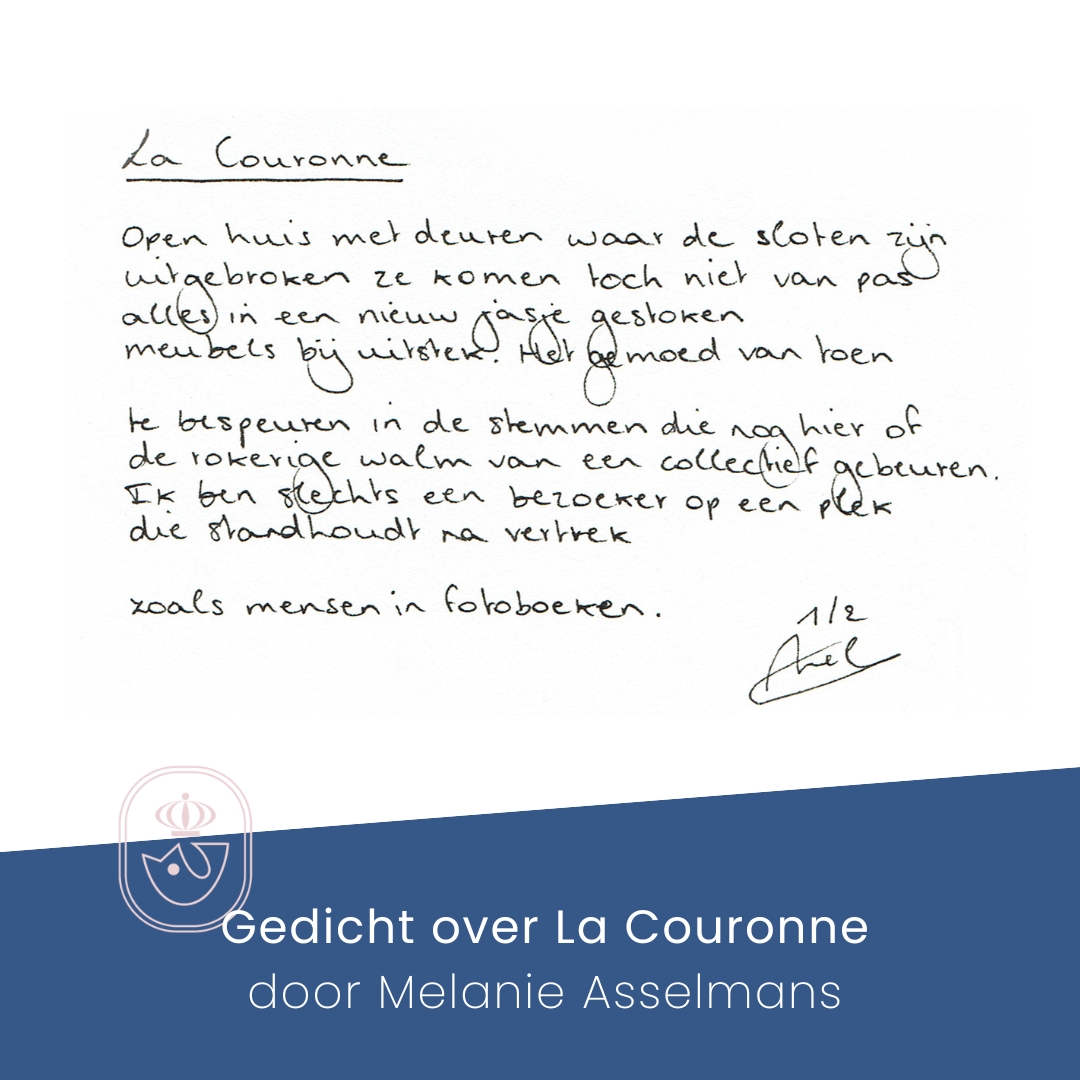 La Couronne
Open huis met deuren waar de sloten zijn
uitgebroken ze komen toch niet van pas
alles in een nieuw jasje gestoken
meubels bij uitstek. Het gemoed van toen
te bespeuren in de stemmen die nog hier of
de rokerige walm van een collectief gebeuren.
Ik ben slechts een bezoeker op een plek
die standhoudt na vertrek
zoals mensen in fotoboeken.
1/2
Gedicht over La Couronne
door Melanie Asselmans